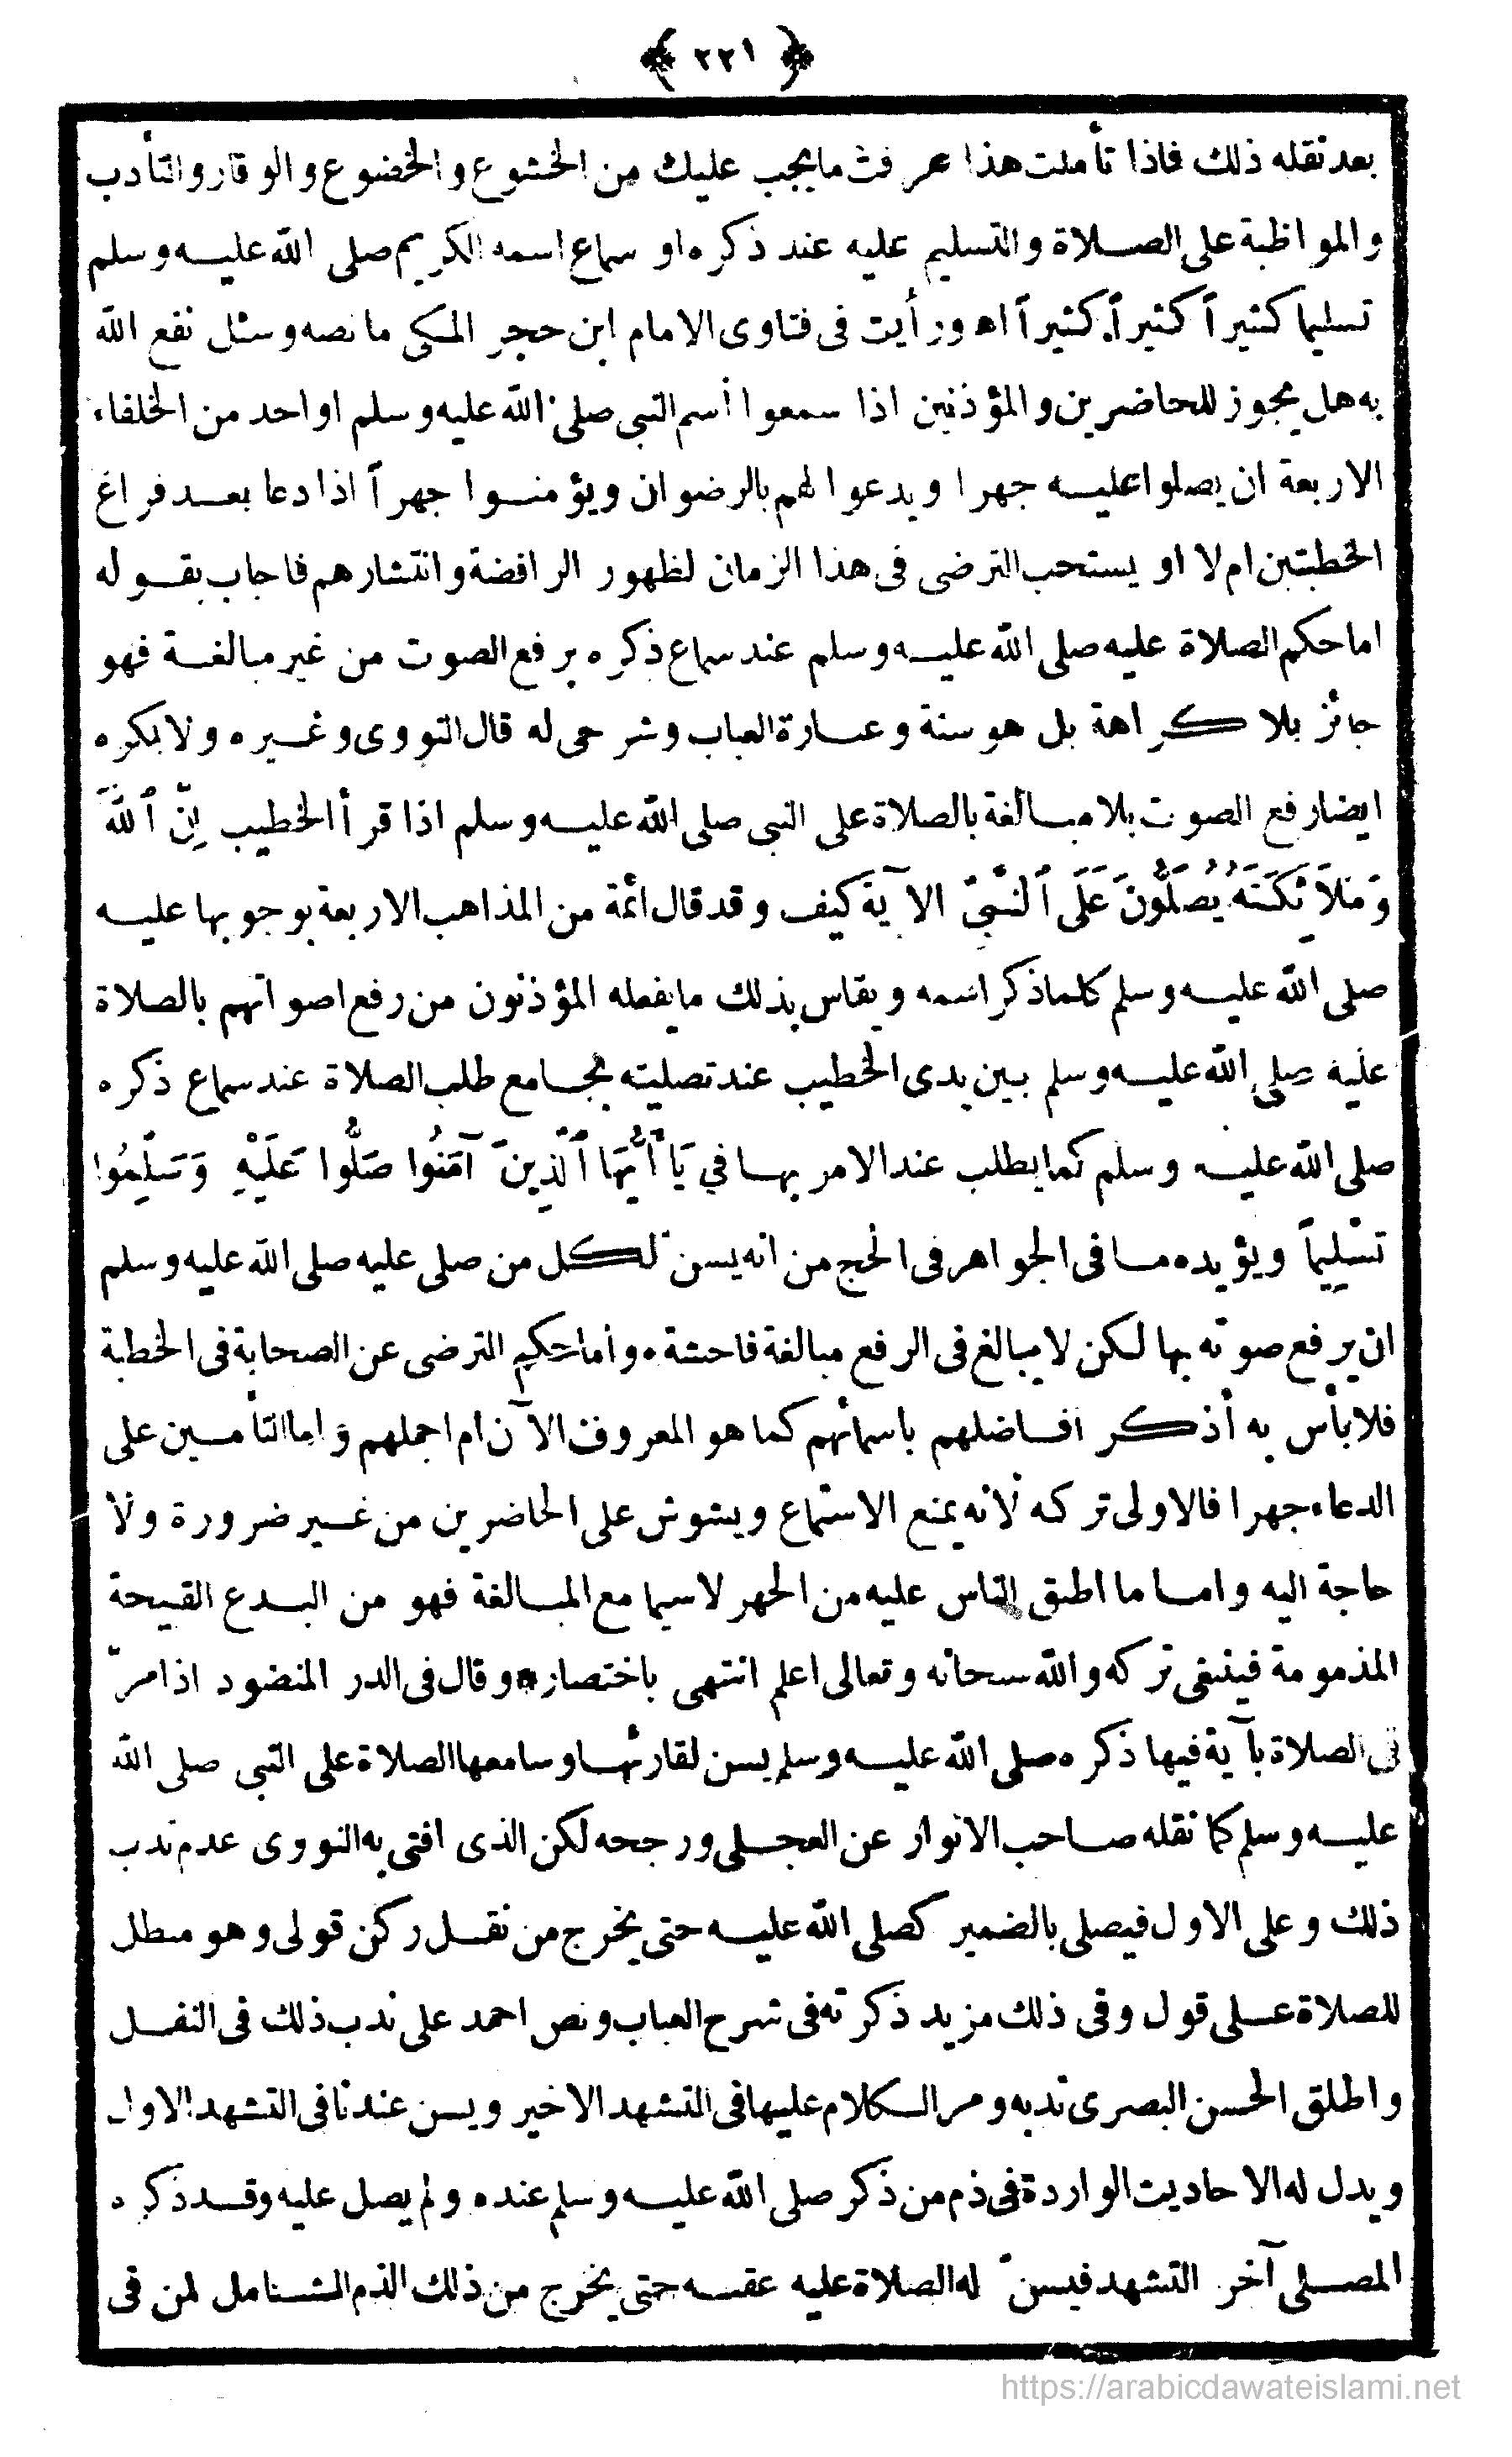 ﴿ ٢٢١ ﴾
بعد نقله ذلك فاذا تأملت هذا عرفت ما يجب عليك من الخشوع والخضوع والوقار والتأدب
والمواظبة على الصلاة والتسليم عليه عند ذكره او سماع اسمه الكريم صلى الله عليه وسلم
تسليما كثيراً كثيراً كثيراً اه ورأيت فى فتاوى الامام ابن حجر المكى ما نصه وسئل نفع الله
به هل يجوز للحاضرين والمؤذنين اذا سمعوا أسم النبى صلى الله عليه وسلم او احد من الخلفاء
الاربعة ان يصلوا عليه جهرا ويدعوا لهم بالرضوان ويؤمنوا جهراً اذا دعا بعد فراغ
الخطبتين ام لا او يستحب الترضى فى هذا الزمان لظهور الرافضة وانتشارهم فاجاب بقوله
اما حكم الصلاة عليه صلى الله عليه وسلم عند سماع ذكره برفع الصوت من غير مبالغة فهو
جائز بلا كراهة بل هو سنة وعبارة العباب وشرحى له قال النووى وغيره ولا يكره
ايضا رفع الصوت بلا مبالغة بالصلاة على النبى صلى الله عليه وسلم اذا قرأ الخطيب إِنَّ ٱللَّهَ
وَمَلَائِكَتَهُ يُصَلُّونَ عَلَى ٱلنَّبِيِّ الآية كيف وقد قال ائمة من المذاهب الاربعة بوجوبها عليه
صلى الله عليه وسلم كلما ذكر اسمه ويقاس بذلك ما يفعله المؤذنون من رفع اصواتهم بالصلاة
عليه صلى الله عليه وسلم بين يدى الخطيب عند تصليته بجامع طلب الصلاة عند سماع ذكره
صلى الله عليه وسلم كما يطلب عند الامر بها في يَا أَيُّهَا ٱلَّذِينَ آمَنُوا صَلُّوا عَلَيْهِ وَسَلِّمُوا
تَسْلِيمًا ويؤيده ما فى الجواهر فى الحج من انه يسنّ لكل من صلى عليه صلى الله عليه وسلم
ان يرفع صوته بها لكن لا يبالغ فى الرفع مبالغة فاحشة ٠ وأما حكم الترضى عن الصحابة فى الخطبة
فلا بأس به أذكر افاضلهم باسمائهم كما هو المعروف الآن ام اجملهم واما التأمين على
الدعاء جهرا فالاولى تركه لانه يمنع الاستماع ويشوش على الحاضرين من غير ضرورة ولا
حاجة اليه واما ما اطبق الناس عليه من الجهر لا سيما مع المبالغة فهو من البدع القبيحة
المذمومة فينبغى تركه والله سبحانه وتعالى اعلم انتهى باختصار * وقال فى الدر المنضود اذا مرّ
فى الصلاة بآية فيها ذكره صلى الله عليه وسلم يسن لقارئها وسامعها الصلاة على النبى صلى الله
عليه وسلم كما نقله صاحب الانوار عن العجلى ورجحه لكن الذى افتى به النووى عدم ندب
ذلك وعلى الاول فيصلى بالضمير كصلى الله عليه حتى يخرج من نقل ركن قولى وهو مبطل
للصلاة على قول وفى ذلك مزيد ذكرته فى شرح العباب ونص احمد على ندب ذلك فى النفل
واطلق الحسن البصرى ندبه ومر الكلام عليها فى التشهد الاخير ويسن عندنا فى التشهد الاول
ويدل له الاحاديث الواردة فى ذم من ذكر صلى الله عليه وسلم عنده ولم يصل عليه وقد ذكره
المصلى آخر التشهد فيسنّ له الصلاة عليه عقبه حتى يخرج من ذلك الذم الشامل لمن فى
https://arabicdawateislami.net